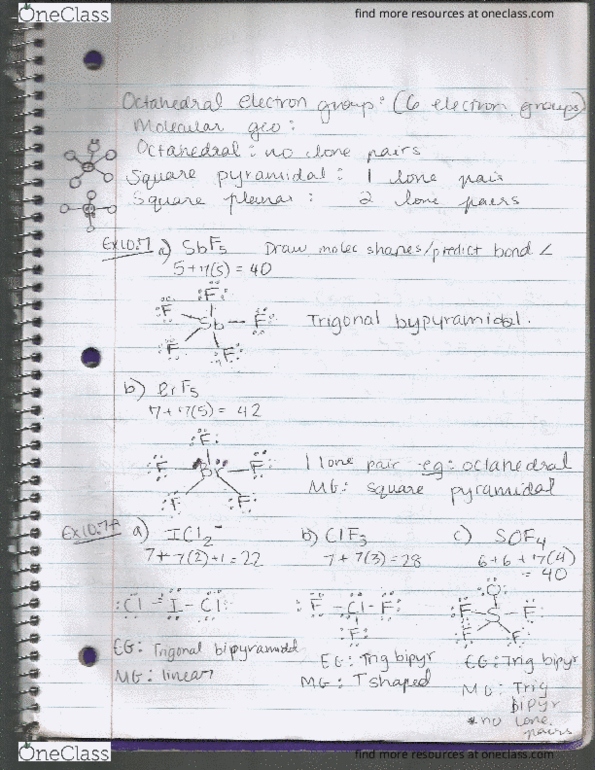 OneClass
find more resources at oneclass.com
Octahedral electron group: (6 electron groups)
Molecular geo:
Octahedral: no lone pairs
Square pyramidal: 1 lone pair
Square planar: 2 lone pairs
Ex10.7 a) SbF5 Draw molec shapes/predict bond <
5+7(5) = 40
F
F Sb F
F F
Trigonal bypyramidal.
b) BrF5
7+7(5) = 42
F
F Br F
F F
1 lone pair eg: octahedral
MG: square pyramidal
a) ICl2- b) ClF3 c) SOF4
7+7(2)+1=22 7+7(3)=28 6+6+7(4)
= 40
O
Cl-I-Cl: F-Cl-F: F S F
F F F
EG: Trigonal bipyramidal EG: Trig bipyr EG: Trig bipyr
MG: linear MG: T shaped MG: Trig
bipyr
*no lone
pairs
OneClass
find more resources at oneclass.com